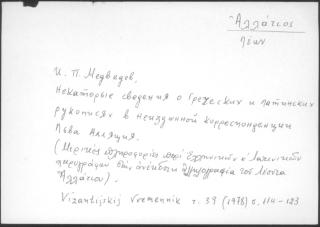 Ἀλλάτιος
Λέων
И. П. Медведев,
Некоторые сведения о греческих и латинских
рукописях в неизданной корреспонденции
Льва Алляция.
(Μερικές πληροφορίες περί ἑλληνικῶν κ̀ λατινικῶν
χειρογράφων στήν ἀνέκδοτη ἀλληλογραφία τοῦ Λέοντα
Ἀλλάτιου).
Vizantijskij Vremennik τ. 39 (1978) σ. 114-123